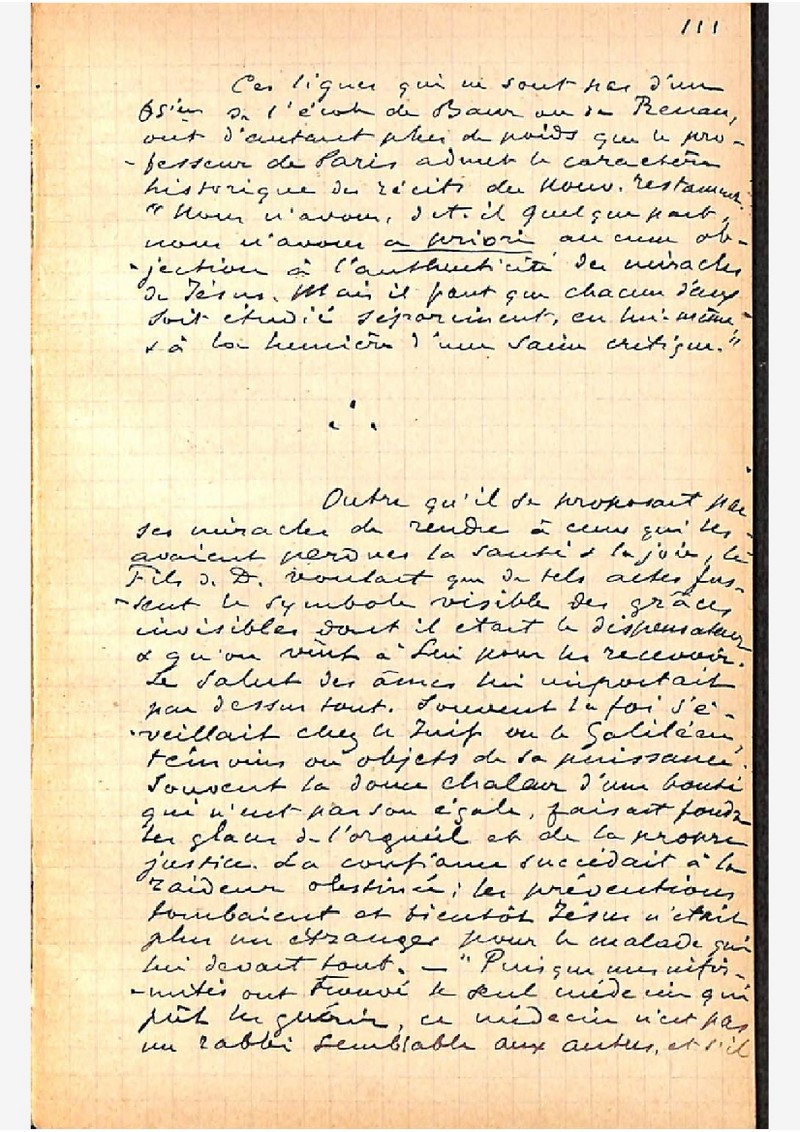 111
Ces lignes qui ne sont pas d'un
de l'école de Baur ou de Renan,
ont d'autant plus de poids que le pro-
-fesseur de Paris admet le caractère
historique des récits du Nouv. Testament.
"Nous n'avons, dit-il quelque part,
nous n'avons a priori aucune ob-
-jection à l'authenticité des miracles
de Jésus. Mais il faut que chacun d'eux
soit étudié séparément, en lui-même,
& à la lumière d'une saine critique."
Outre qu'il se proposait par
ses miracles de rendre à ceux qui les
avaient perdues la santé & la joie, le
Fils de D. voulait que de tels actes fus-
-sent le symbole visible des grâces
invisibles dont il était le dispensateur
& qu'on vînt à Lui pour les recevoir.
Le salut des âmes lui importait
par dessus tout. Souvent la foi s'é-
-veillait chez le Juif ou le Galiléen,
témoins ou objets de sa puissance.
Souvent la douce chaleur d'une bonté
qui n'eut pas son égale, faisait fondre
les glaces de l'orgueil et de la propre
justice. La confiance succédait à la
raideur obstinée ; les préventions
tombaient et bientôt Jésus n'était
plus un étranger pour le malade qui
lui devait tout. — "Puisque mes infir-
-mités ont trouvé le seul médecin qui
pût les guérir, ce médecin n'est pas
un rabbi semblable aux autres, et s'il